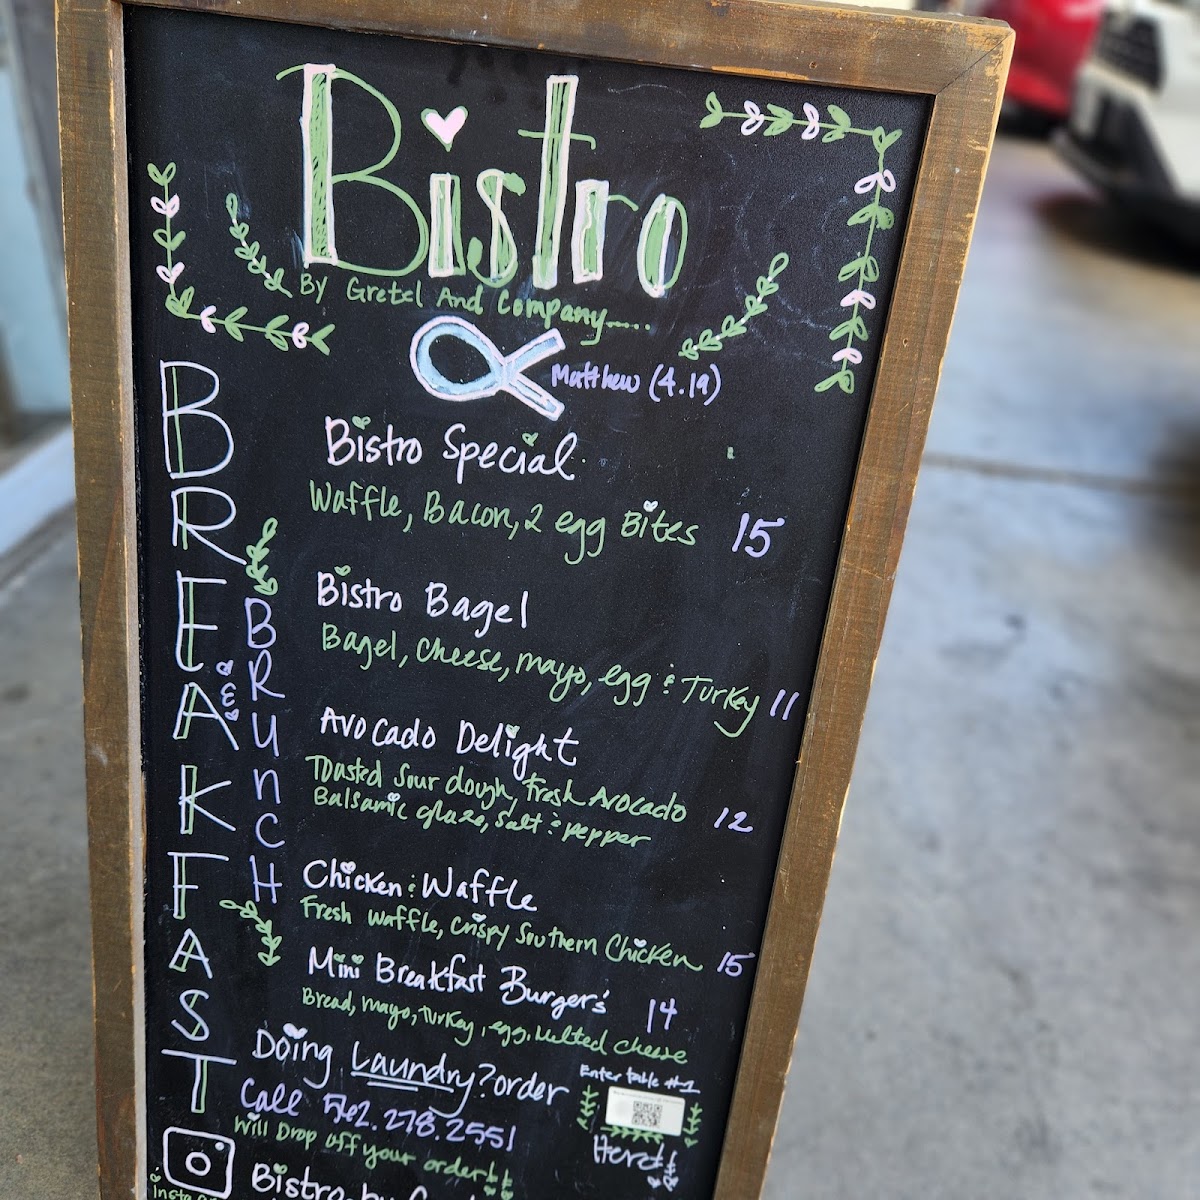 Bistro
By Gretel And Company.....
Matthew (4.19)
BREAKFAST
&
BRUnCH
Bistro Special
Waffle, Bacon, 2 egg Bites 15
Bistro Bagel
Bagel, cheese, mayo, egg & Turkey 11
Avocado Delight
Toasted Sour dough, Fresh Avocado
Balsamic glaze, Salt & pepper 12
Chicken & Waffle
Fresh waffle, Crispy Southern Chicken 15
Mini Breakfast Burgers' 14
Bread, mayo, Turkey, egg, Melted cheese
Doing Laundry? order
Enter table #1
Call 562.278.2551
Will Drop off your order!!
Here!!
Bistro by